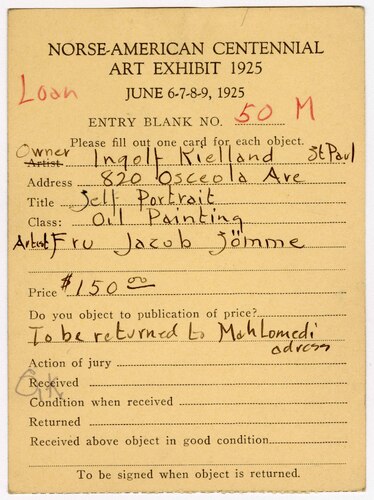 NORSE-AMERICAN CENTENNIAL
ART EXHIBIT 1925
Loan
JUNE 6-7-8-9, 1925
ENTRY BLANK NO. 50 M
Please fill out one card for each object.
Owner Artist Ingolf Kielland St Paul
Address 820 Osceola Ave
Title Self Portrait
Class: Oil Painting
Artist Fru Jacob Sömme
Price $150.00
Do you object to publication of price?
To be returned to Mahtomedi
adress
Action of jury
G.K.
Received
Condition when received
Returned
Received above object in good condition
To be signed when object is returned.